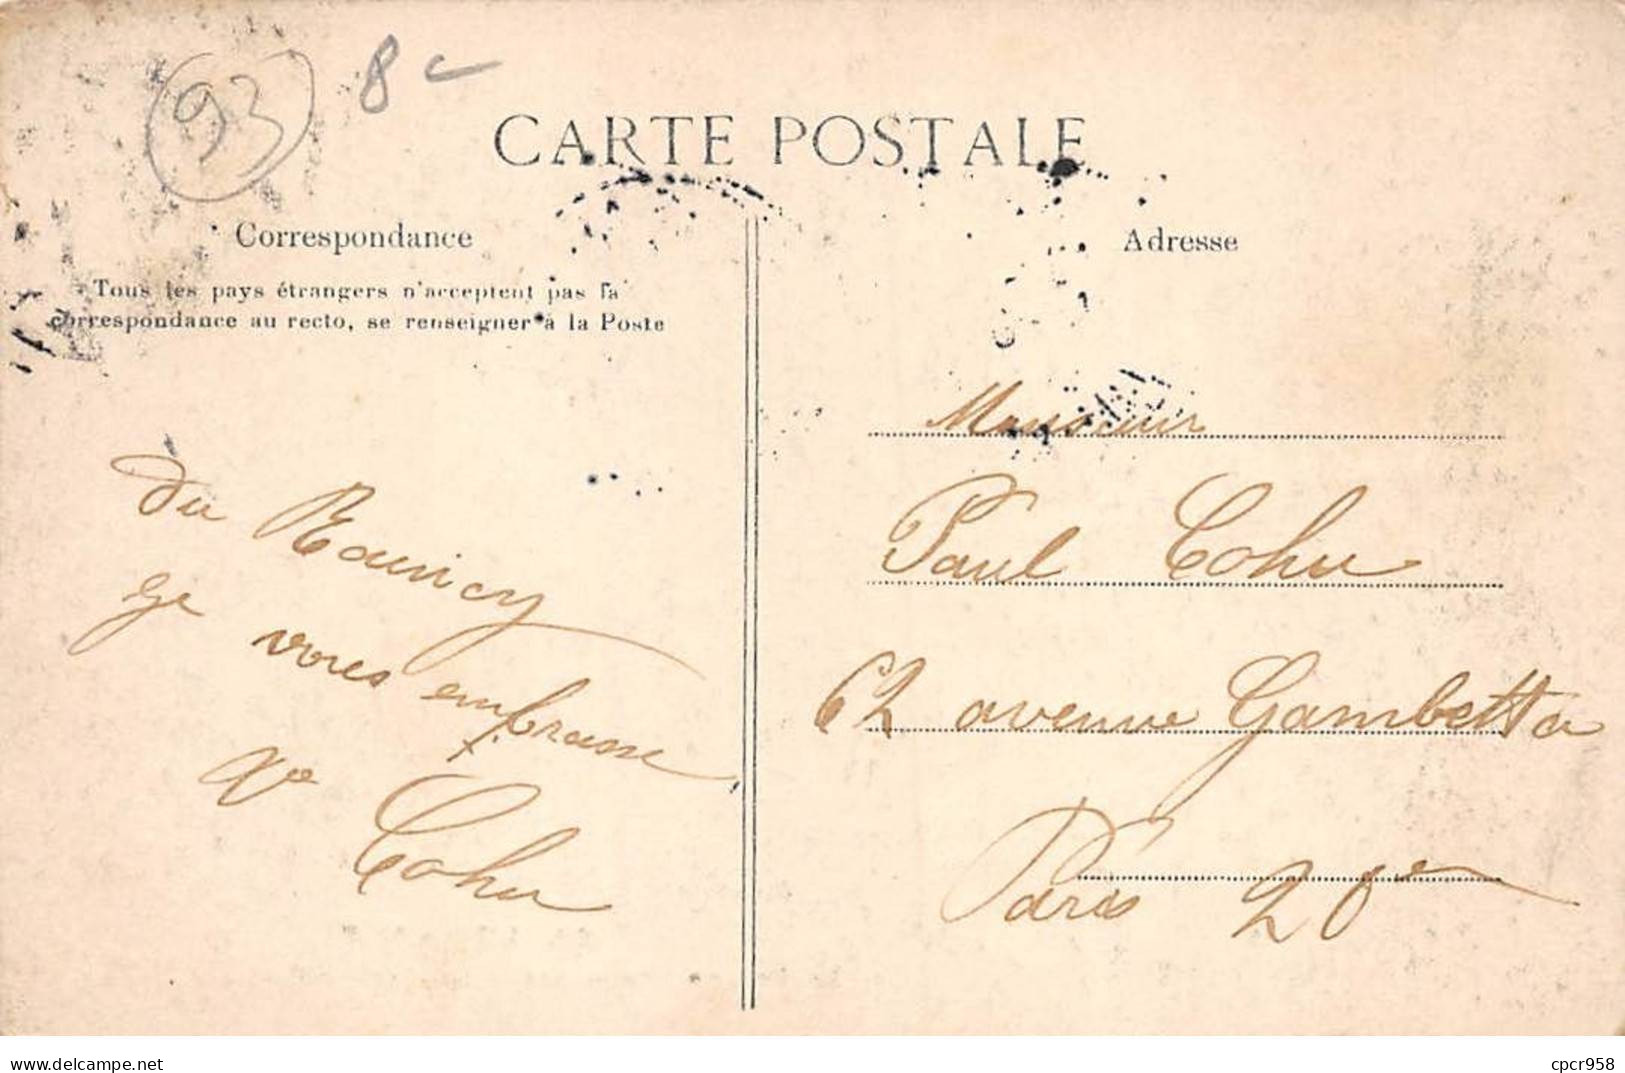 93
8
CARTE POSTALE
Correspondance
Tous les pays étrangers n'acceptent pas la
correspondance au recto, se renseigner à la Poste
du Raincy
Je
vous embrasse
Vve
Cohu
Adresse
Monsieur
Paul Cohu
62 avenue Gambetta
Paris 20e
delcampe.net
cpcr958